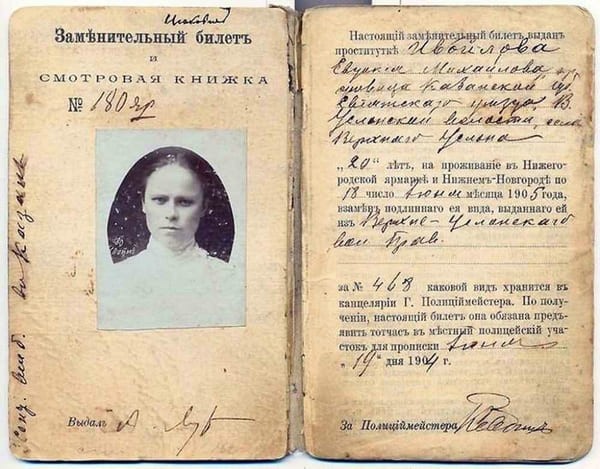 Замѣнительный билетъ
и
СМОТРОВАЯ КНИЖКА
№ 180 яр
Выдалъ
Настоящій замѣнительный билетъ выданъ
проституткѣ
Михайлова
Казанской губ.
уезда, В.
Услонской волости, села
Верхняго Услона
„20“ лѣтъ, на проживаніе въ Нижего-
родской ярмаркѣ и Нижнемъ-Новгородѣ по
18 число Іюня мѣсяца 1905 года,
взамѣнъ подлиннаго ея вида, выданнаго ей
изъ Верхне-Услонскаго
вол Прав.
за № 468 каковой видъ хранится въ
канцеляріи Г. Полиціймейстера. По полу-
ченіи, настоящій билетъ она обязана предъ-
явить тотчасъ въ мѣстный полицейскій уча-
стокъ для прописки Іюня
„19“ дня 1904 г.
За Полиціймейстера